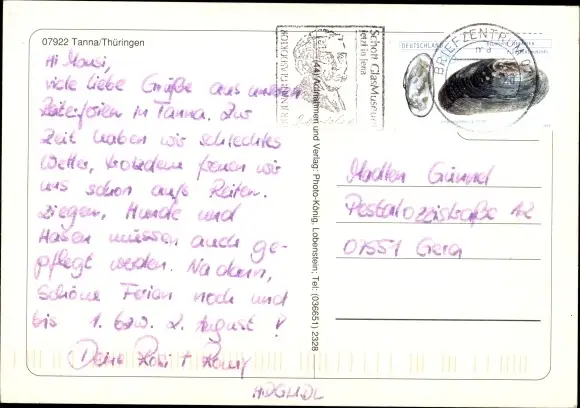 07922 Tanna/Thüringen
Hi Mausi,
viele liebe Grüße aus unseren
Reiterferien in Tanna. Zur
Zeit haben wir schlechtes
Wetter, trotzdem freuen wir
uns schon aufs Reiten.
Ziegen, Hunde und
Hasen müssen auch ge-
pflegt werden. Na dann,
schöne Ferien noch und
bis 1. bzw. 2. August!
Deine Romi + Romy
HDGMDL
(44) Aufnahmen und Verlag: Photo-König, Lobenstein; Tel: (036651) 2328
Schott GlasMuseum
jetzt in Jena
DEUTSCHLAND
BRIEFZENTRUM 07
Madlen Günnel
Pestalozzistraße 12
07551 Gera